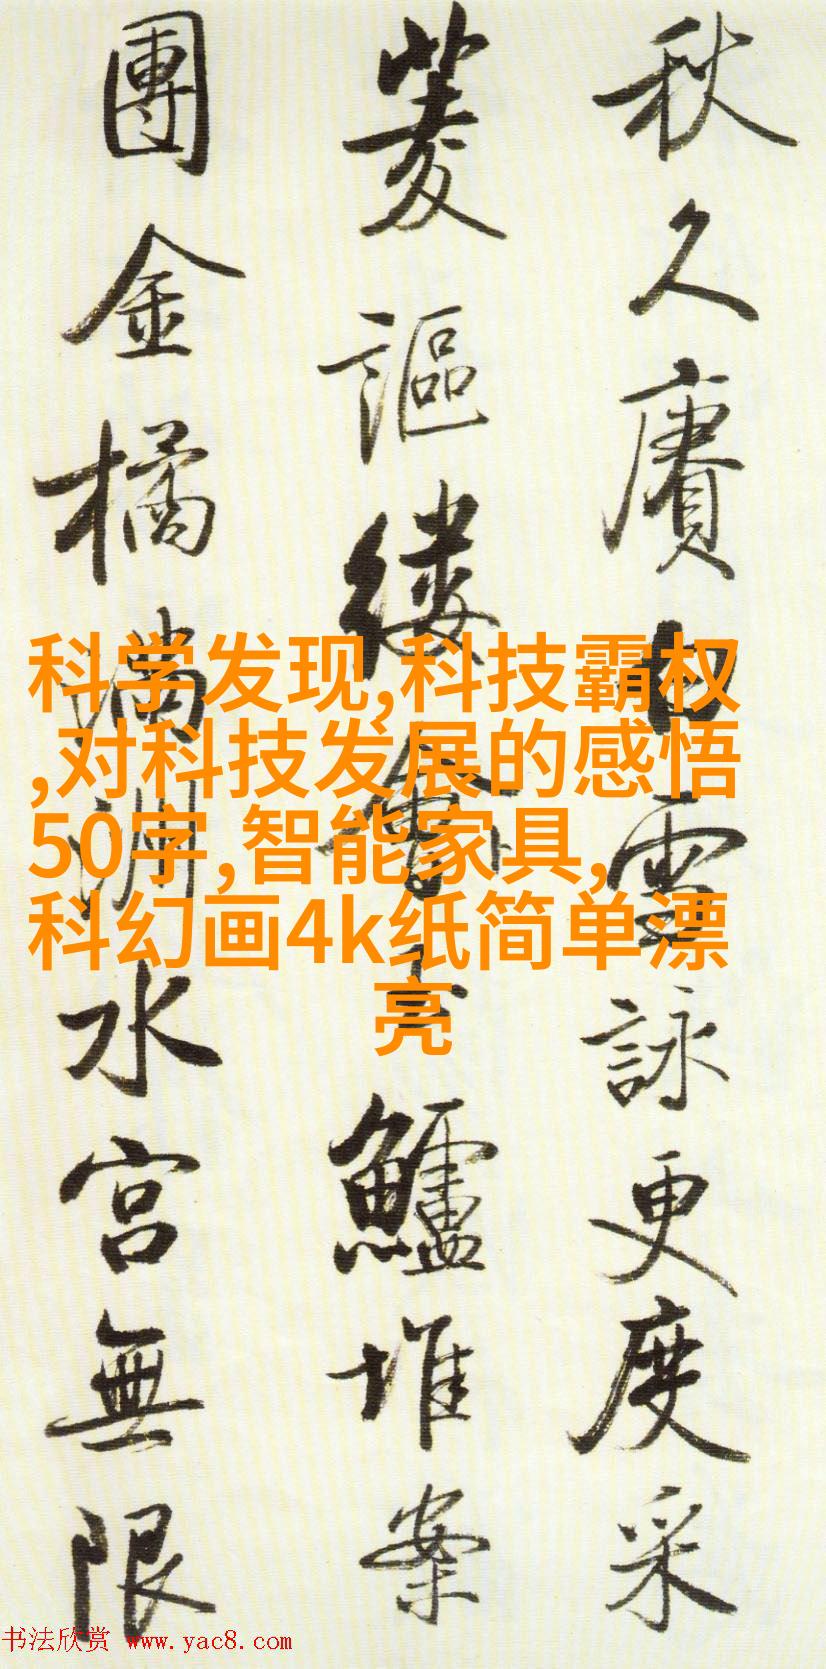 秋久賡白雪詠更度采
菱謳縷會玉鱸堆案
團金橘滿洲水宮無限
科学发现,科技霸权
,对科技发展的感悟
50字,智能家具,
科幻画4k纸简单漂
亮
书法欣赏 www.yac8.com